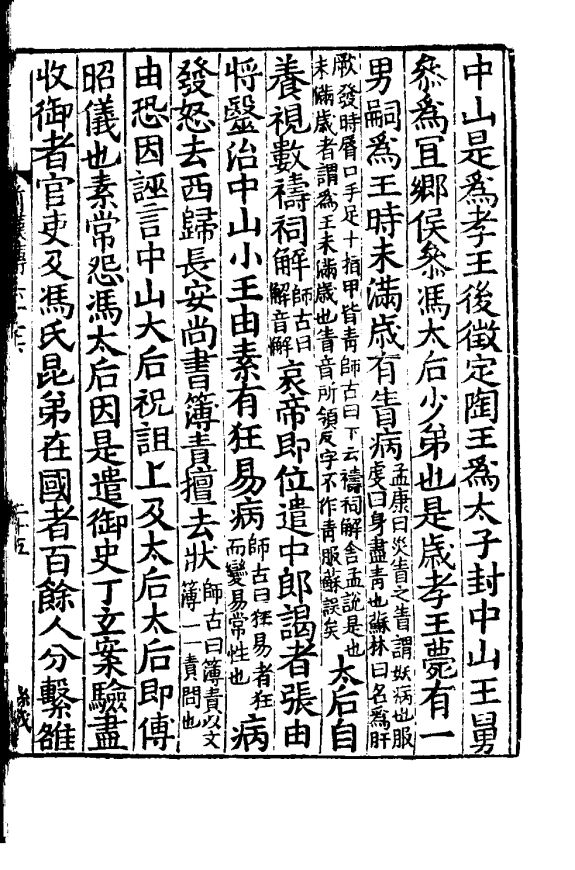 中山是為孝王後徵定陶王為太子封中山王舅
叅為冝鄉侯叅馮太后少弟也是歳孝王薨有一
男嗣為王時未滿歳有眚病孟康曰災眚之眚謂妖病也服虔曰身盡青也蘇林曰名為肝
厥發時脣口手足十指甲皆青師古曰下云禱祠解舍孟說是也未滿歳者謂為王未滿歳也眚音所領反字不作青服蘇誤矣太后自
養視數禱祠解師古曰解音解哀帝即位遣中郎謁者張由
将毉治中山小王由素有狂易病師古曰狂易者狂而變易常性也病
發怒去西歸長安尚書簿責擅去狀師古曰簿責以文簿一一責問也
由恐因誣言中山太后祝詛上及太后太后即傅
昭儀也素常怨馮太后因是遣御史丁玄案驗盡
收御者官吏及馮氏昆弟在國者百餘人分繫雒
二十五